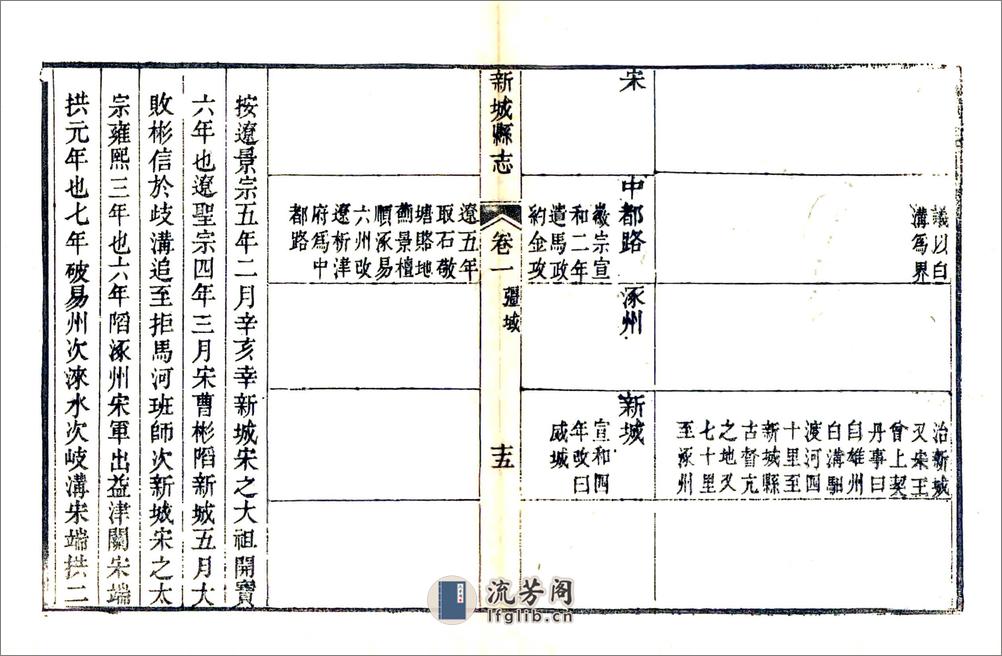 議以白
溝爲界
治新城
又宋王
曾上契
丹事曰
自雄州
白溝馹
渡河四
十里至
新城縣
古督亢
之地又
七十里
至涿州
宋
中都路
徽宗宣
和二年
遣馬政
約金攻
遼五年
取石敬
塘賂地
薊景檀
順涿易
六州改
遼析津
府爲中
都路
涿州
新城
宣和四
年改曰
威城
新城縣志
卷一
疆域
十五
按遼景宗五年二月辛亥幸新城宋之大祖開寶
六年也遼聖宗四年三月宋曹彬陷新城五月大
敗彬信於歧溝追至拒馬河班師次新城宋之太
宗雍熙三年也六年陷涿州宋軍出益津關宋端
拱元年也七年破易州次淶水次岐溝宋端拱二
流芳阁
lfglib.cn